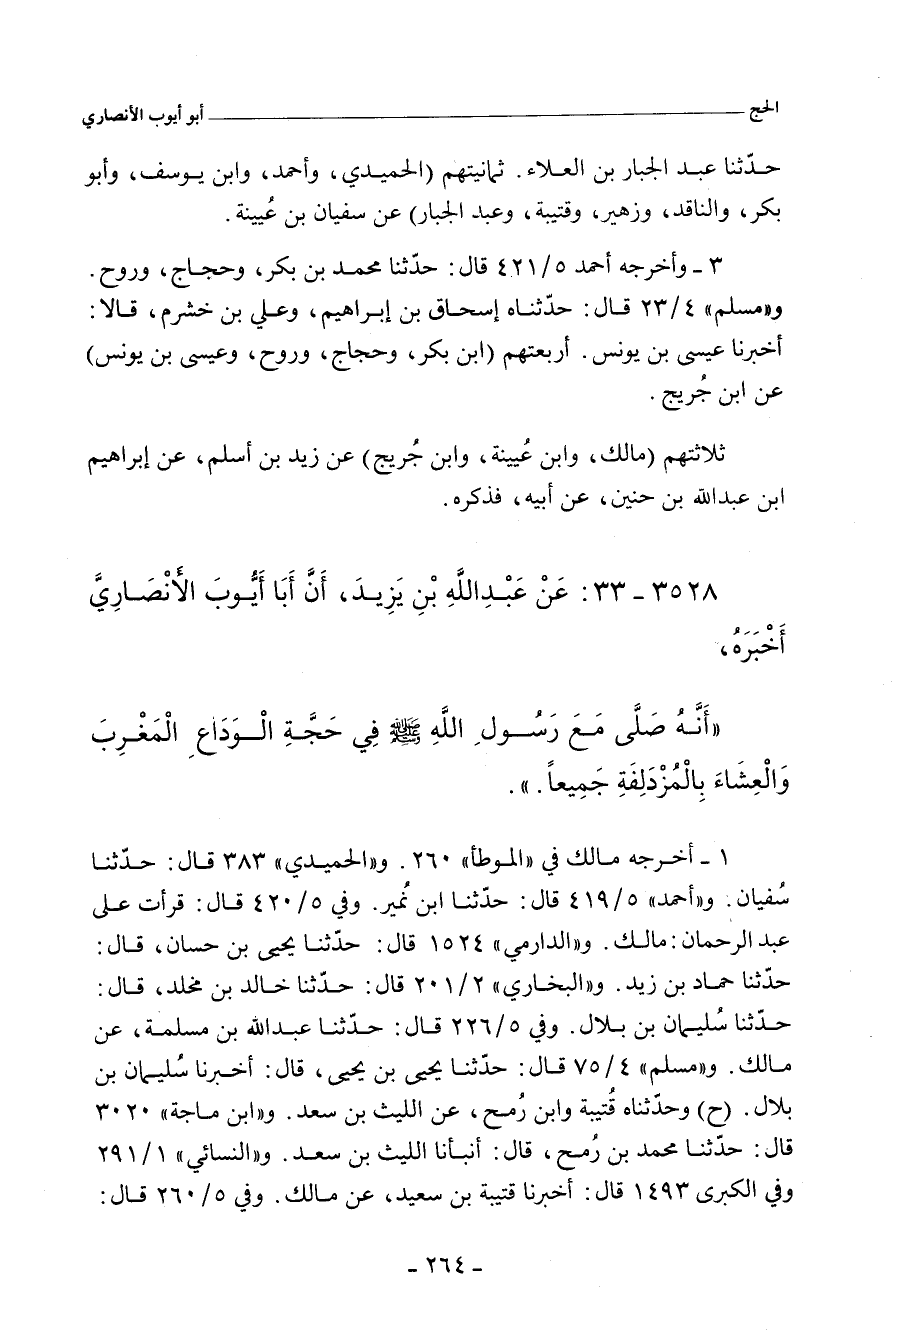 الحج ــــــــــــــــــــ أبو أيوب الأنصاري
حدّثنا عبد الجبار بن العلاء. ثمانيتهم (الحميدي، وأحمد، وابن يوسف، وأبو
بكر، والناقد، وزهير، وقتيبة، وعبد الجبار) عن سفيان بن عُيينة.
٣ - وأخرجه أحمد ٤٢١/٥ قال: حدّثنا محمد بن بكر، وحجاج، وروح.
و«مسلم» ٢٣/٤ قال: حدّثناه إسحاق بن إبراهيم، وعلي بن خشرم، قالا:
أخبرنا عيسى بن يونس. أربعتهم (ابن بكر، وحجاج، وروح، وعيسى بن يونس)
عن ابن جُريج.
ثلاثتهم (مالك، وابن عُيينة، وابن جُريج) عن زيد بن أسلم، عن إبراهيم
ابن عبدالله بن حنين، عن أبيه، فذكره.
٣٥٢٨ - ٣٣: عَنْ عَبْدِاللَّهِ بْنِ يَزِيدَ، أَنَّ أَبَا أَيُّوبَ الأَنْصَارِيَّ
أَخْبَرَهُ،
«أَنَّهُ صَلَّى مَعَ رَسُولِ اللَّهِ ﷺ فِي حَجَّةِ الْوَدَاعِ الْمَغْرِبَ
وَالْعِشَاءَ بِالْمُزْدَلِفَةِ جَمِيعاً.».
١ - أخرجه مالك في «الموطأ» ٢٦٠. و«الحميدي» ٣٨٣ قال: حدّثنا
سُفيان. و«أحمد» ٤١٩/٥ قال: حدّثنا ابن نُمير. وفي ٤٢٠/٥ قال: قرأت على
عبد الرحمان: مالك. و«الدارمي» ١٥٢٤ قال: حدّثنا يحيى بن حسان، قال:
حدّثنا حماد بن زيد. و«البخاري» ٢٠١/٢ قال: حدّثنا خالد بن مخلد، قال:
حدّثنا سُليمان بن بلال. وفي ٢٢٦/٥ قال: حدّثنا عبدالله بن مسلمة، عن
مالك. و«مسلم» ٧٥/٤ قال: حدّثنا يحيى بن يحيى، قال: أخبرنا سُليمان بن
بلال. (ح) وحدّثناه قُتيبة وابن رُمح، عن الليث بن سعد. و«ابن ماجة» ٣٠٢٠
قال: حدّثنا محمد بن رُمح، قال: أنبأنا الليث بن سعد. و«النسائي» ٢٩١/١
وفي الكبرى ١٤٩٣ قال: أخبرنا قتيبة بن سعيد، عن مالك. وفي ٢٦٠/٥ قال:
- ٢٦٤ -